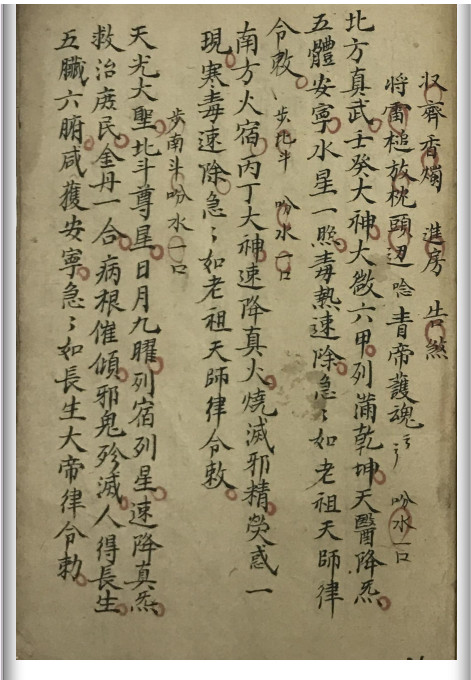 収齊香燭 進房 告煞
将雷槌放枕頭边 唸青帝護魂 吩水一口
北方真武壬癸大神大激六甲列滿乾坤天醫降炁
五體安寧水星一照毒熱速除急〻如老祖天師律
令敕 步北斗 吩水一口
南方火宿丙丁大神速降真火燒滅邪精熒惑一
現寒毒速除急〻如老祖天師律令敕
步南斗吩水一口
天光大聖北斗尊星日月九曜列宿列星速降真炁
救治庶民金丹一合病根催傾邪鬼殄滅人得長生
五臟六腑咸獲安寧急〻如長生大帝律令勅